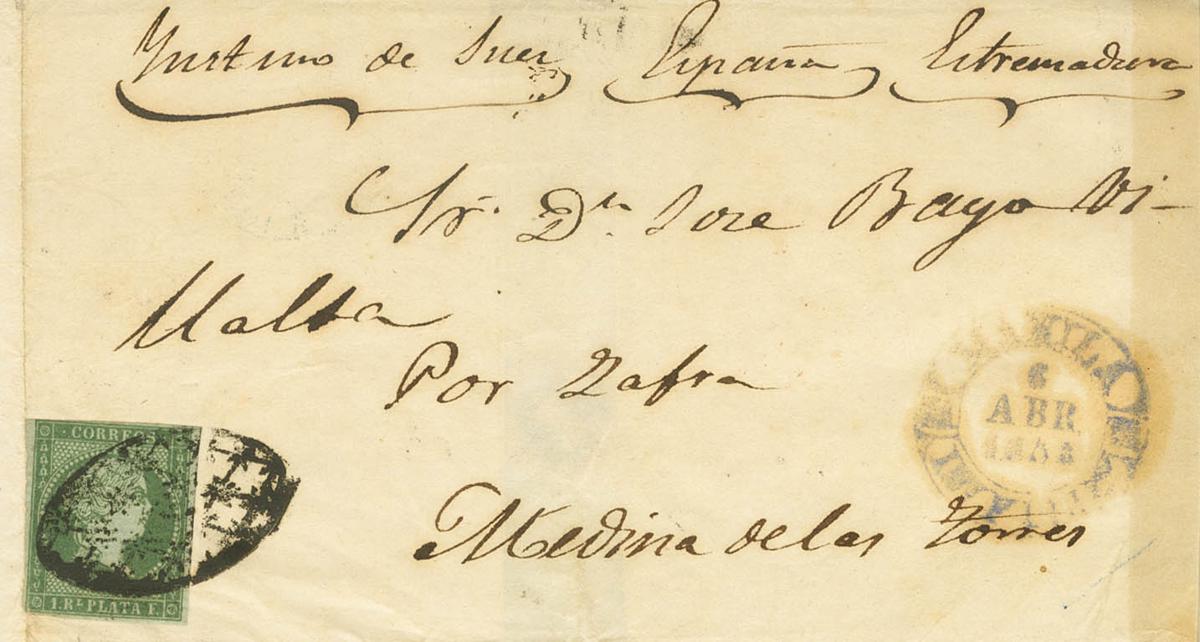 Yustmo de Suez España Estremadura
Sr. Dn. Jose Bayo Vi-
llalta
Por Zafra
Medina de las Torres
MANILA
6
ABR
CORREOS
1. Rl. PLATA F.